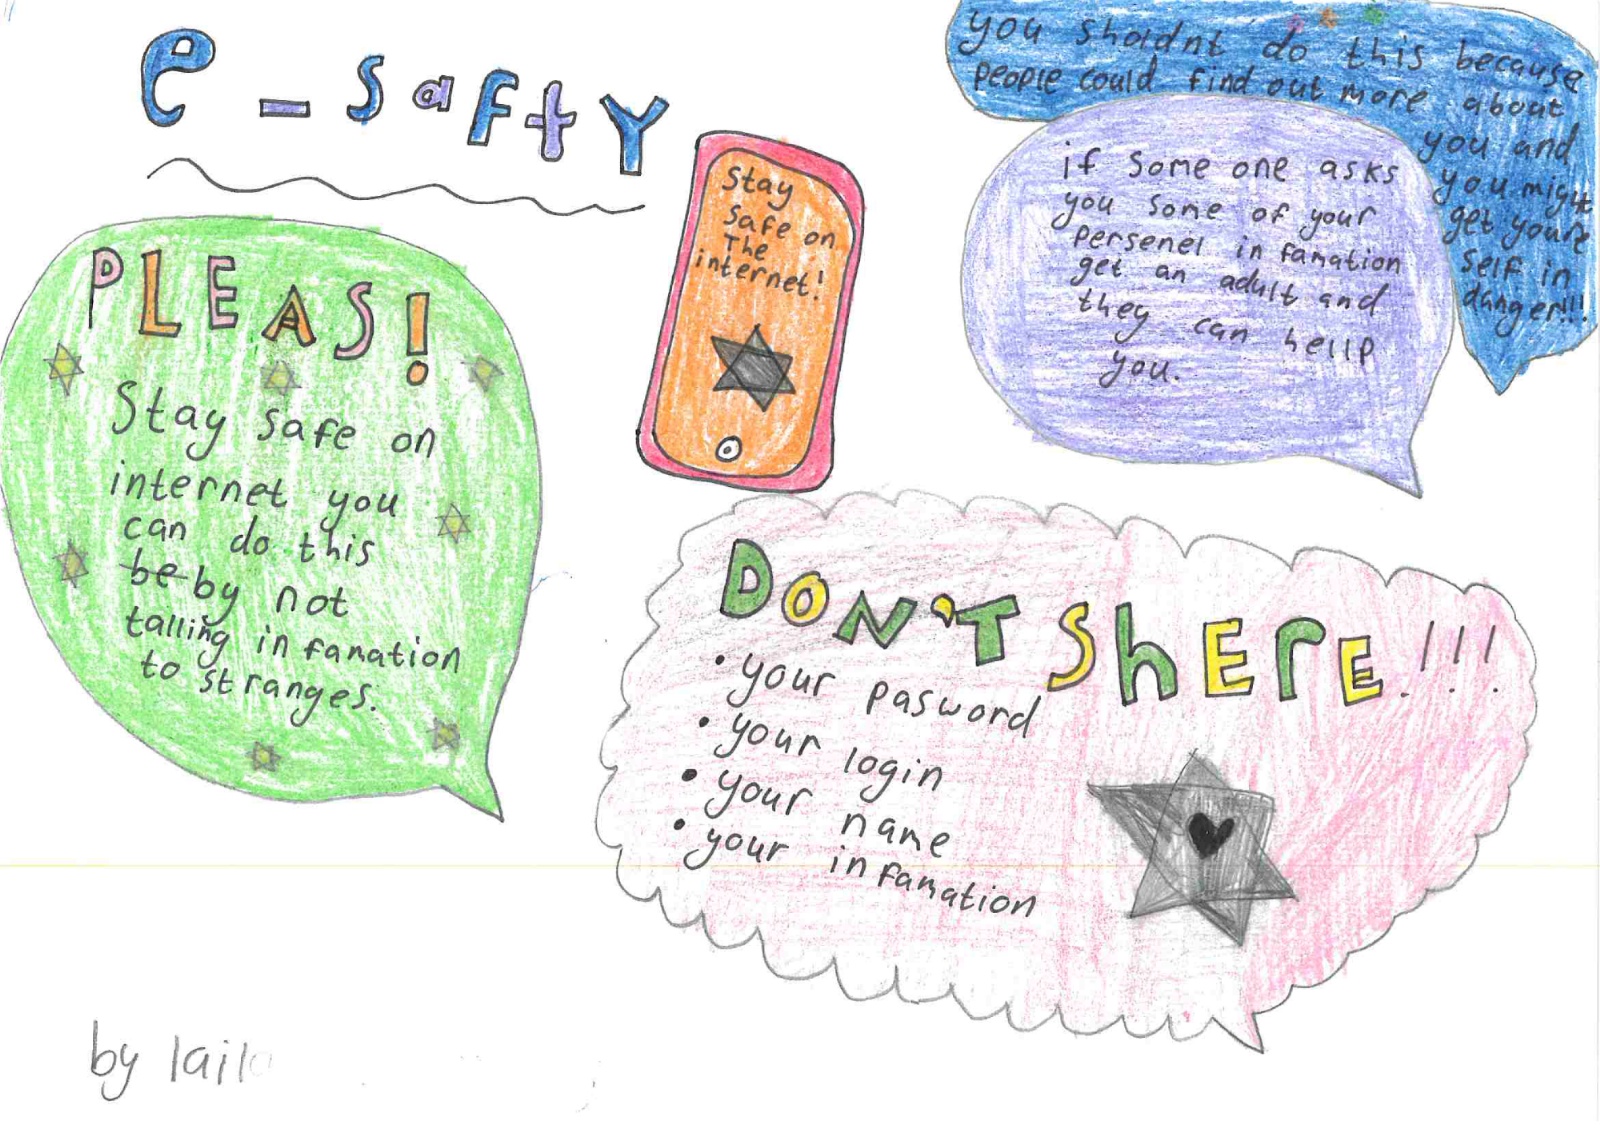 e-safty
PLEAS!
Stay safe on
internet you
can do this
be by not
talling in famation
to stranges.
Stay
safe on
The
internet!
you sholdnt do this because
people could find out more about
you and
you might
get youre
self in
danger!!!
if some one asks
you some of your
persenel in famation
get an adult and
they can hellp
you.
DON'T ShErE!!!
• your pasword
• your login
• your name
• your in famation
by laila